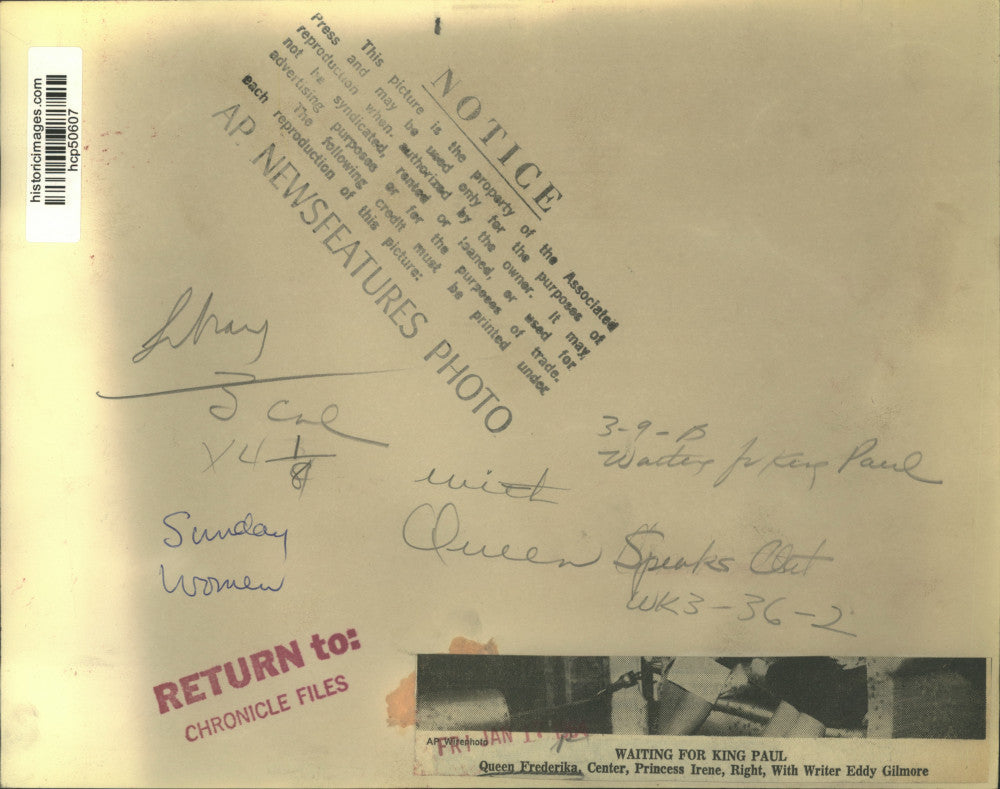 historicimages.com
hcp50607
NOTICE
This picture is the property of the Associated
Press and may be used only for the purposes of
reproduction when authorized by the owner. It may
not be syndicated, rented or loaned, or used for
advertising purposes or for the purposes of trade.
The following credit must be printed under
each reproduction of this picture:
AP NEWSFEATURES PHOTO
Library
3 Col
X 4 1/8
3-9-B
Waiting for King Paul
with
Queen Speaks Out
WK3-36-2
Sunday
Women
RETURN to:
CHRONICLE FILES
FRI JAN
AP Wirephoto
WAITING FOR KING PAUL
Queen Frederika, Center, Princess Irene, Right, With Writer Eddy Gilmore